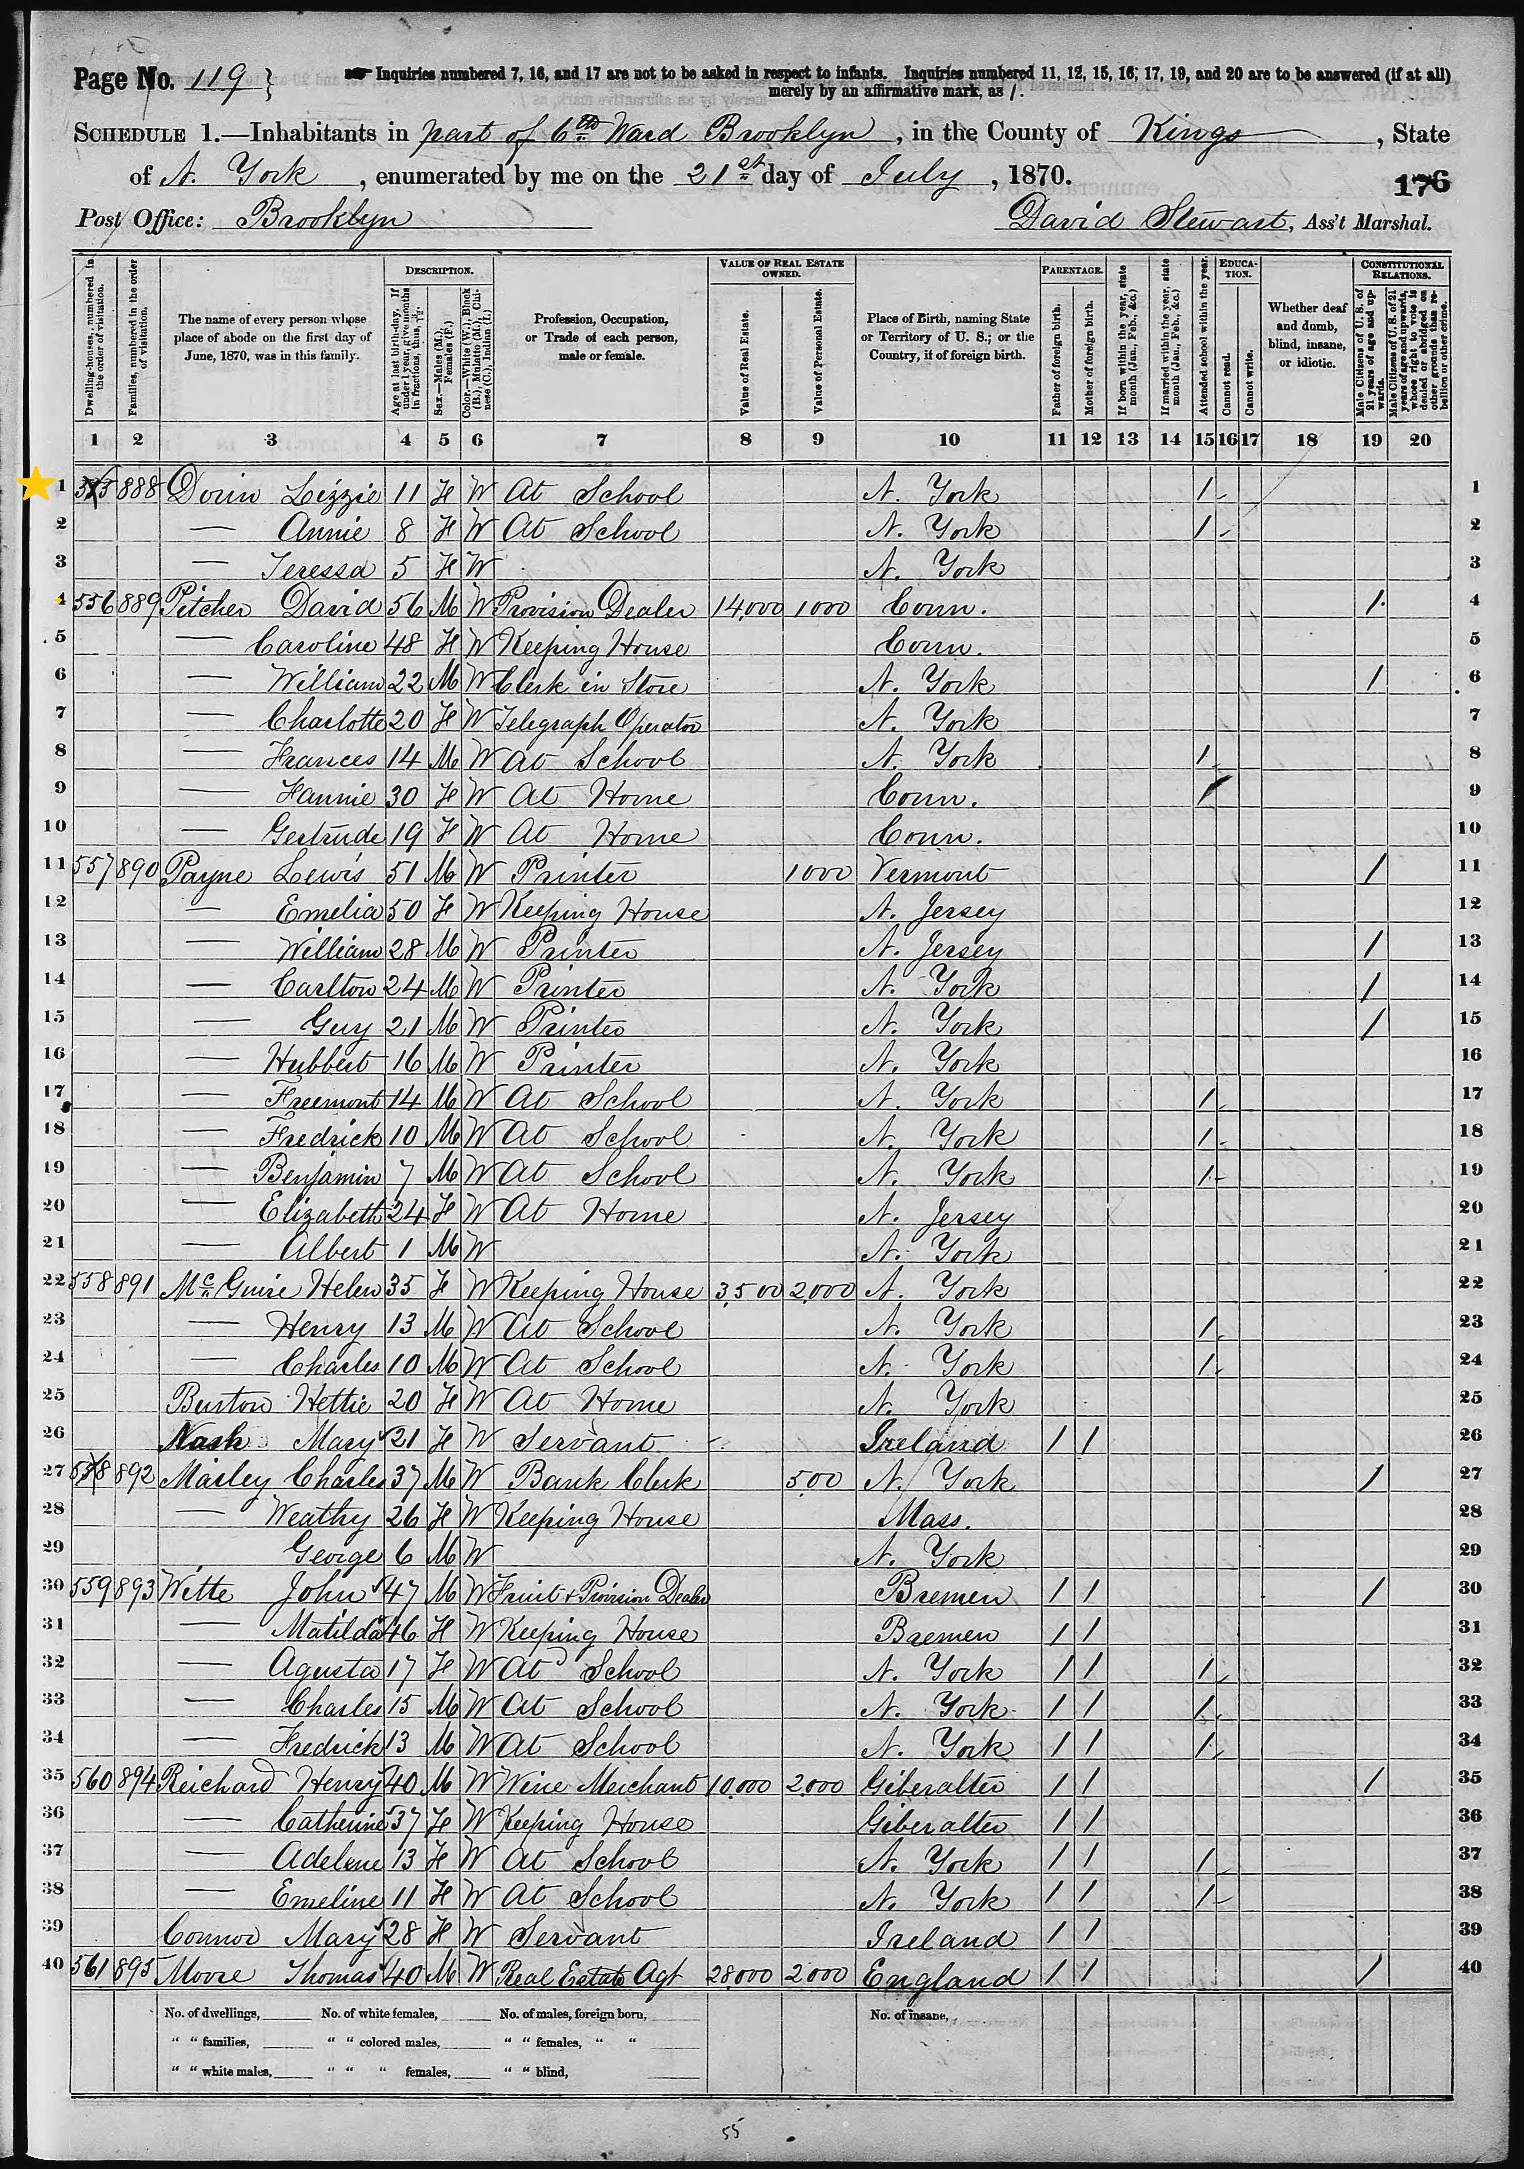 Page No. 119 }
Inquiries numbered 7, 16, and 17 are not to be asked in respect to infants. Inquiries numbered 11, 12, 15, 16, 17, 19, and 20 are to be answered (if at all)
merely by an affirmative mark, as /.
SCHEDULE 1.—Inhabitants in part of 6th Ward Brooklyn, in the County of Kings, State
of N. York, enumerated by me on the 21st day of July, 1870.
176
Post Office: Brooklyn David Stewart, Ass't Marshal.
DESCRIPTION. VALUE OF REAL ESTATE OWNED. PARENTAGE. EDUCATION. CONSTITUTIONAL RELATIONS.
Dwelling-houses, numbered in the order of visitation.
Families, numbered in the order of visitation.
The name of every person whose place of abode on the first day of June, 1870, was in this family.
Age at last birth-day. If under 1 year, give months in fractions, thus, 3/12.
Sex.—Males (M.), Females (F.)
Color.—White (W.), Black (B.), Mulatto (M.), Chinese (C.), Indian (I.)
Profession, Occupation, or Trade of each person, male or female.
Value of Real Estate.
Value of Personal Estate.
Place of Birth, naming State or Territory of U. S.; or the Country, if of foreign birth.
Father of foreign birth.
Mother of foreign birth.
If born within the year, state month (Jan., Feb., &c.)
If married within the year, state month (Jan., Feb., &c.)
Attended school within the year.
Cannot read.
Cannot write.
Whether deaf and dumb, blind, insane, or idiotic.
Male Citizens of U. S. of 21 years of age and upwards.
Male Citizens of U. S. of 21 years of age and upwards, whose right to vote is denied or abridged on other grounds than rebellion or other crime.
1 2 3 4 5 6 7 8 9 10 11 12 13 14 15 16 17 18 19 20
1 888 Dorin Lizzie 11 F W At School N. York / 1
2 — Annie 8 F W At School N. York / 2
3 — Teressa 5 F W N. York 3
4 556 889 Pitcher David 56 M W Provision Dealer 14,000 1000 Conn. / 4
5 — Caroline 48 F W Keeping House Conn. 5
6 — William 22 M W Clerk in Store N. York / 6
7 — Charlotte 20 F W Telegraph Operator N. York 7
8 — Frances 14 M W At School N. York / 8
9 — Fannie 30 F W At Home Conn. / 9
10 — Gertrude 19 F W At Home Conn. 10
11 557 890 Payne Lewis 51 M W Printer 1000 Vermont / 11
12 — Emelia 50 F W Keeping House N. Jersey 12
13 — William 28 M W Printer N. Jersey / 13
14 — Carlton 24 M W Printer N. York / 14
15 — Guy 21 M W Printer N. York / 15
16 — Hubbert 16 M W Printer N. York 16
17 — Freemont 14 M W At School N. York / 17
18 — Fredrick 10 M W At School N. York / 18
19 — Benjamin 7 M W At School N. York / 19
20 — Elizabeth 24 F W At Home N. Jersey 20
21 — Albert 1 M W N. York 21
22 558 891 McGuire Helen 35 F W Keeping House 3,500 2,000 N. York 22
23 — Henry 13 M W At School N. York / 23
24 — Charles 10 M W At School N. York / 24
25 Burton Hettie 20 F W At Home N. York 25
26 Nash Mary 21 F W Servant Ireland / / 26
27 558 892 Marley Charles 37 M W Bank Clerk 500 N. York / 27
28 — Weathy 26 F W Keeping House Mass. 28
29 George 6 M W N. York 29
30 559 893 Witte John 47 M W Fruit + Provision Dealer Bremen / / / 30
31 — Matilda 46 F W Keeping House Bremen / / 31
32 — Agusta 17 F W At School N. York / / / 32
33 — Charles 15 M W At School N. York / / / 33
34 — Fredrick 13 M W At School N. York / / / 34
35 560 894 Reichard Henry 40 M W Wine Merchant 10,000 2,000 Giberalter / / / 35
36 — Catherine 37 F W Keeping House Giberalter / / 36
37 — Adelene 13 F W At School N. York / / / 37
38 — Emeline 11 F W At School N. York / / / 38
39 Connor Mary 28 F W Servant Ireland / / 39
40 561 895 Moore Thomas 40 M W Real Estate Agt 28,000 2000 England / / / 40
No. of dwellings, No. of white females, No. of males, foreign born, No. of insane,
" " families, " " colored males, " " females, " "
" " white males, " " " females, " " blind,
55